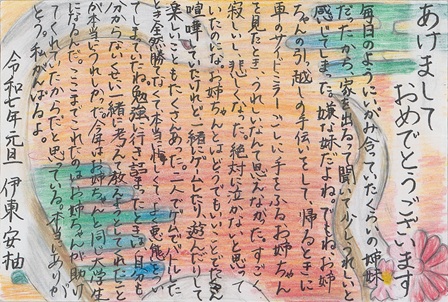 あけまして
おめでとうございます
毎日のようにいがみ合っていたくらいの姉妹
だったから、家を出るって聞いて少しうれしいと
感じてしまった。嫌な妹だよね。でもね、お姉
ちゃんの引っ越しの手伝いをして、帰るときに
車のサイドミラーごしに、手をふるお姉ちゃん
を見たとき、うれしいなんて思えなかった。すごく
寂しいし、悲しくなった。絶対に泣かないと思って
いたのになぁ。お姉ちゃんとはどうでもいいことでたくさん
喧嘩していたけれど、一緒にゲームしたり遊んだりして
楽しいこともたくさんあった。二人でゲームでバトルした
とき全然勝てなくて本当に悔しくてよく悪態をつい
てしまっていたね。勉強に行き詰まったときは、自分も
分からないくせに一緒に考えて教えようとしてくれたこと
が本当にうれしかった。今年、お姉ちゃんと同じ大学生
になるんだ。ここまでこれたのはお姉ちゃんが助け
てくれていたからだと思っている。本当にありが
とう。私、がんばるよ。
令和七年元旦　伊東安柚